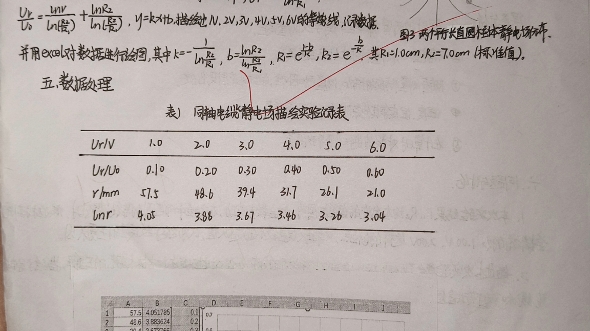 Ur/U0 = lnr/ln(R1/R2) + lnR2/ln R2/R1, y=kx+b, 描绘过1V, 2V, 3V, 4V, 5V, 6V的等势线, 记录数据.
图3 两个同轴长直圆柱体静电场分布.
并用excel对数据进行绘图, 其中k=-1/ln R2/R1, b=lnR2/ln R2/R1, R1=e^(1-b)/k, R2=e^-b/k, 其R1=1.0cm, R2=7.0cm (标准值).
五. 数据处理
表1 同轴电缆静电场描绘实验记录表
Ur/V 1.0 2.0 3.0 4.0 5.0 6.0
Ur/U0 0.10 0.20 0.30 0.40 0.50 0.60
r/mm 57.5 48.6 39.4 31.7 26.1 21.0
lnr 4.05 3.88 3.67 3.46 3.26 3.04
A B C D E F G H I J
1 57.5 4.051785 0.1 0.7
2 48.6 3.883624 0.2